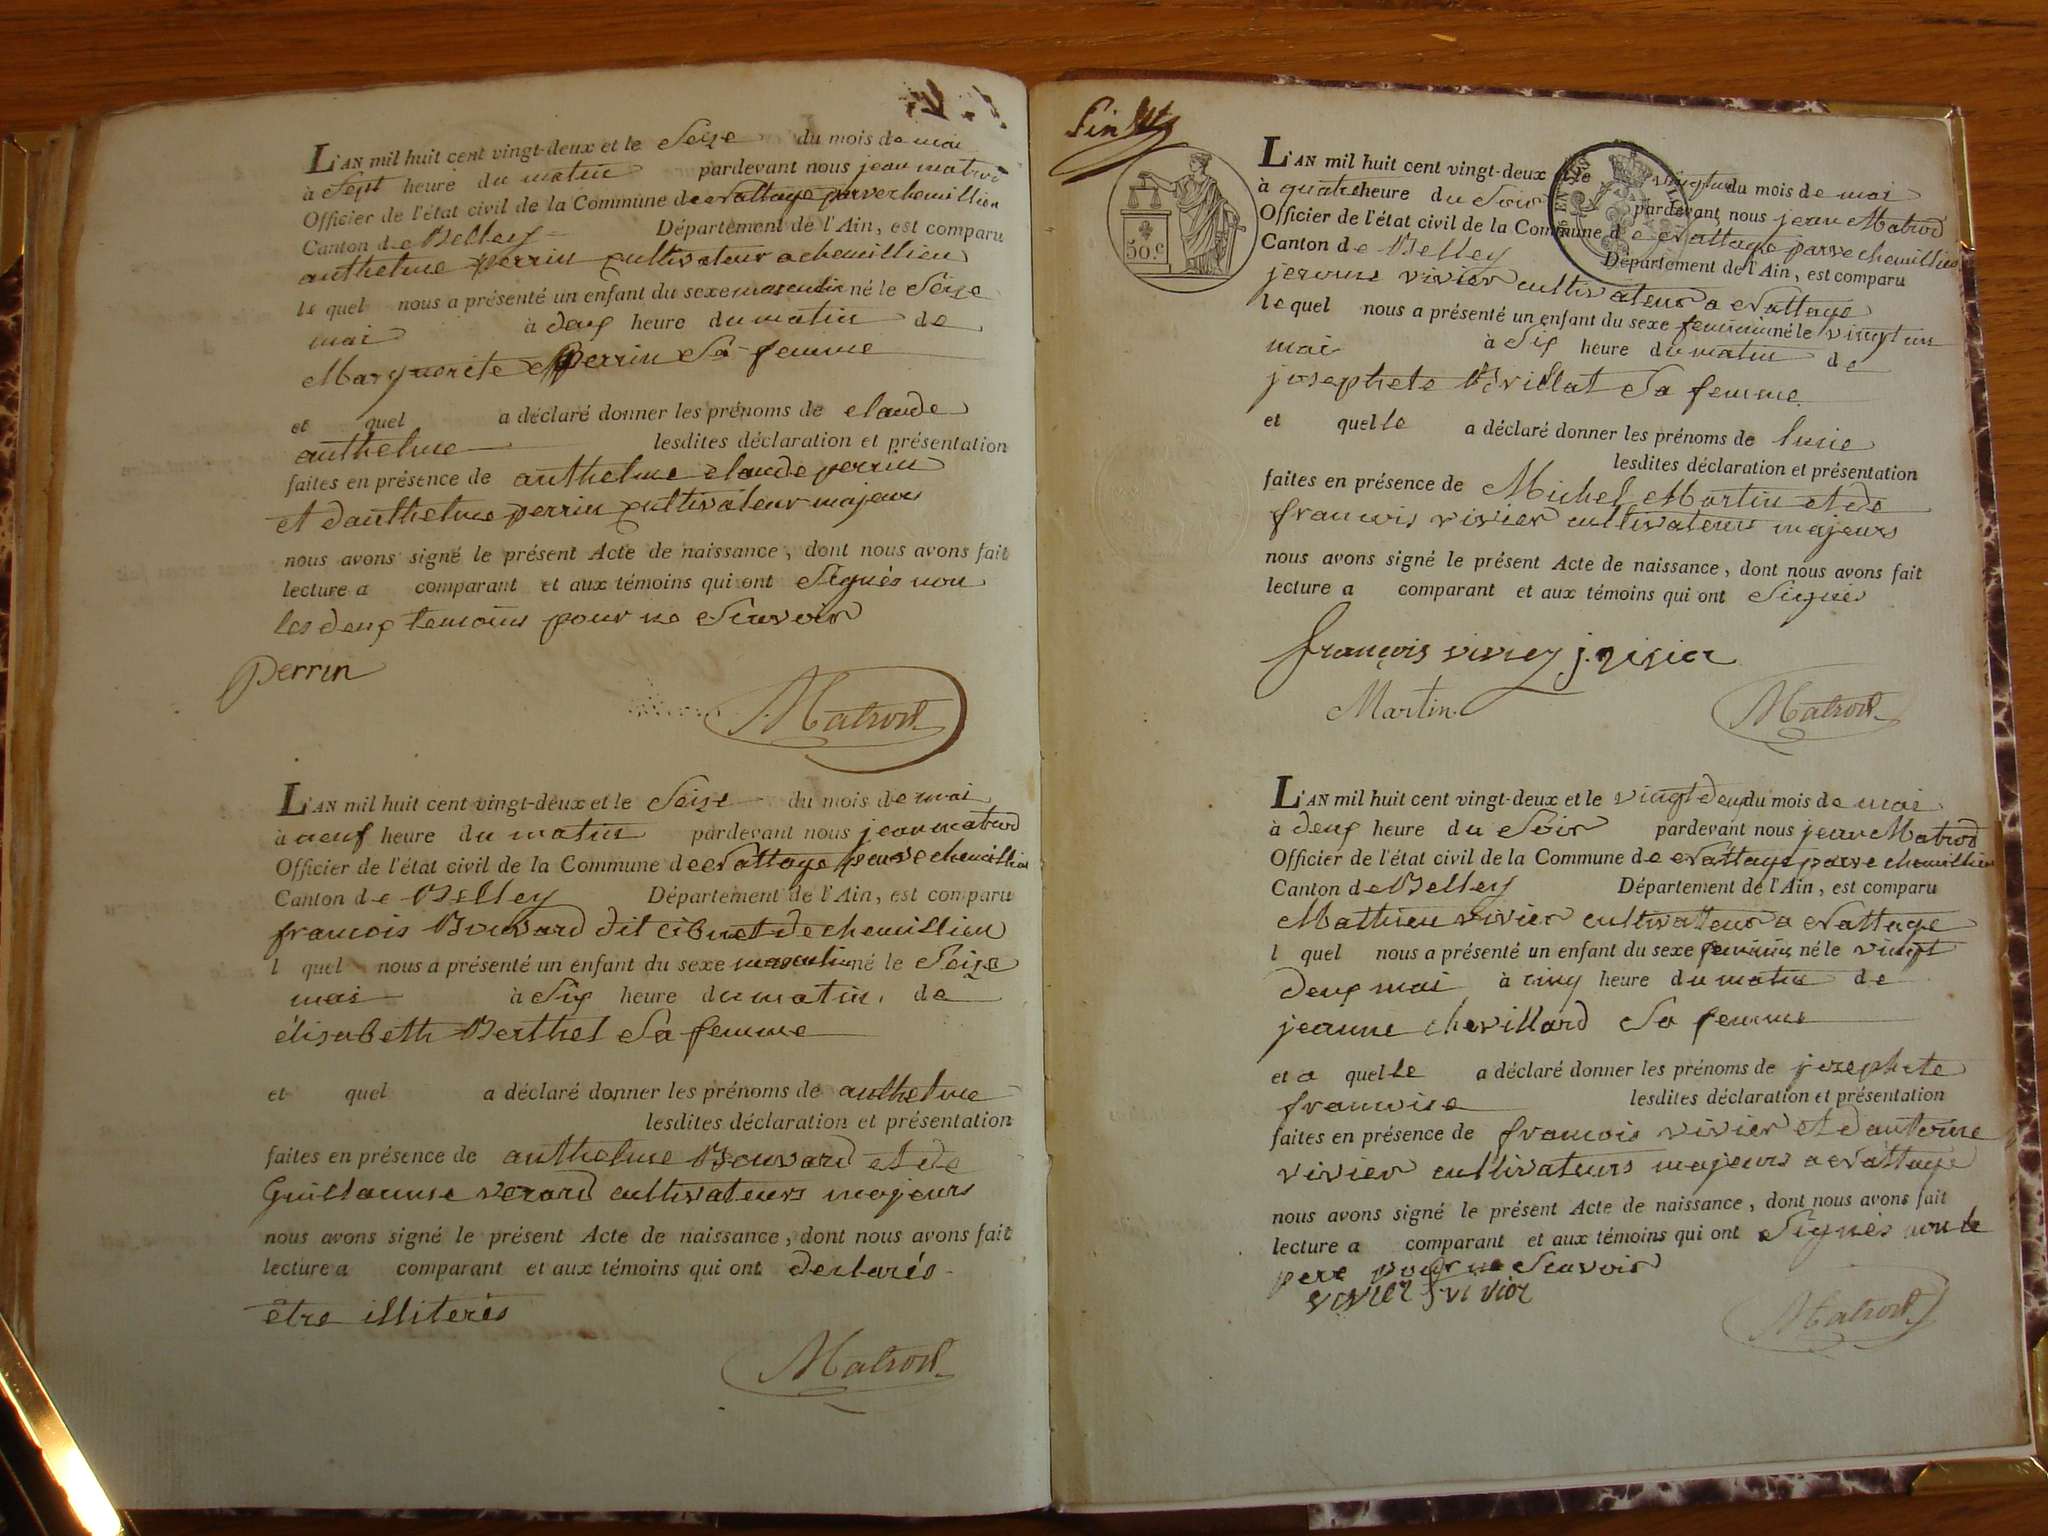 L'AN mil huit cent vingt-deux et le Seize du mois de mai
à Sept heure du matin pardevant nous jean matrod
Officier de l'état civil de la Commune de nattage parve chemillien
Canton de Belley Département de l'Ain, est comparu
anthelme perrin cultivateur a chemillien
le quel nous a présenté un enfant du sexe masculin né le Seize
mai à deux heure du matin de
Marguerite perrin Sa femme
et quel a déclaré donner les prénoms de claude
anthelme lesdites déclaration et présentation
faites en présence de anthelme claude perrin
et danthelme perrin cultivateur majeurs
nous avons signé le présent Acte de naissance, dont nous avons fait
lecture a comparant et aux témoins qui ont Signés non
les deux temoins pour ne Scavoir
perrin
Matrod
L'AN mil huit cent vingt-deux et le Seize du mois de mai
à neuf heure du matin pardevant nous jean matrod
Officier de l'état civil de la Commune de nattage parve chemillien
Canton de Belley Département de l'Ain, est comparu
francois Bouvard dit de chemillien
l quel nous a présenté un enfant du sexe masculin né le Seize
mai à Six heure du matin de
élisabeth Berthet Sa femme
et quel a déclaré donner les prénoms de anthelme
lesdites déclaration et présentation
faites en présence de anthelme Bouvard et de
Guillaume verard cultivateurs majeurs
nous avons signé le présent Acte de naissance, dont nous avons fait
lecture a comparant et aux témoins qui ont declarés
être illiterés
Matrod
50.c
L'AN mil huit cent vingt-deux et le vingtun du mois de mai
à quatre heure du Soir pardevant nous jean Matrod
Officier de l'état civil de la Commune de nattage parve chemillien
Canton de Belley Département de l'Ain, est comparu
jerome vivier cultivateur a nattage
le quel nous a présenté un enfant du sexe feminin né le vingt un
mai à Six heure du matin de
josephete Brillat Sa femme
et quelle a déclaré donner les prénoms de lucie
lesdites déclaration et présentation
faites en présence de Michel Martin et de
francois vivier cultivateurs majeurs
nous avons signé le présent Acte de naissance, dont nous avons fait
lecture a comparant et aux témoins qui ont Signés
françois j. vivier
Martin
Matrod
L'AN mil huit cent vingt-deux et le vingt deux du mois de mai
à deux heure du Soir pardevant nous jean Matrod
Officier de l'état civil de la Commune de nattage parve chemillien
Canton de Belley Département de l'Ain, est comparu
Mathieu vivier cultivateur a nattage
l quel nous a présenté un enfant du sexe feminin né le vingt
deux mai à cinq heure du matin de
jeanne chevillard Sa femme
et a quelle a déclaré donner les prénoms de josephete
francoise lesdites déclaration et présentation
faites en présence de francois vivier et dantoine
vivier cultivateurs majeurs a nattage
nous avons signé le présent Acte de naissance, dont nous avons fait
lecture a comparant et aux témoins qui ont Signés non le
pere pour ne Scavoir
vivier f vivier
Matrod